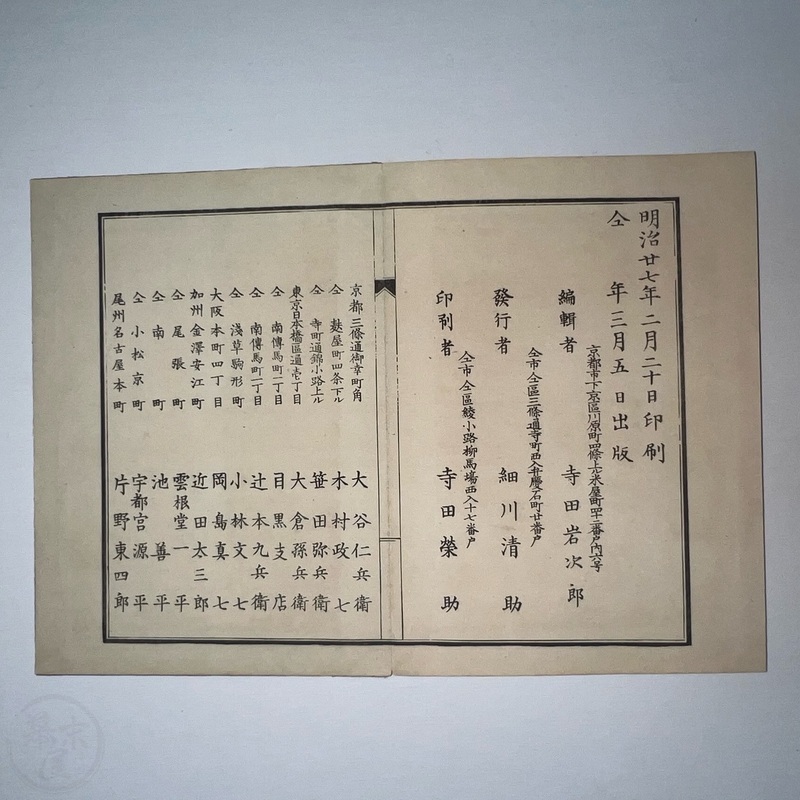 明治廿七年二月二十日印刷
仝年三月五日出版
京都市下京區川原町四條上ル米屋町四十二番戸内六号
編輯者 寺田岩次郎
仝市仝區三條通寺町西入弁慶石町廿番戸
發行者 細川清助
仝市仝區綾小路柳馬塲西入十七番戸
印刷者 寺田榮助
京都三條通御幸町角 大谷仁兵衛
仝 麩屋町四条下ル 木村政七
仝 寺町通錦小路上ル 笹田弥兵衛
東京日本橋區通壱丁目 大倉孫兵衛
仝 南傳馬町二丁目 目黒支店
仝 南傳馬町一丁目 辻本九兵衛
仝 淺草駒形町 小林文七
大阪本町四丁目 岡島真七
加州金澤安江町 近田太三郎
仝 尾張町 雲根堂一平
仝 南町 池善平
仝 小松京町 宇都宮源平
尾州名古屋本町 片野東四郎